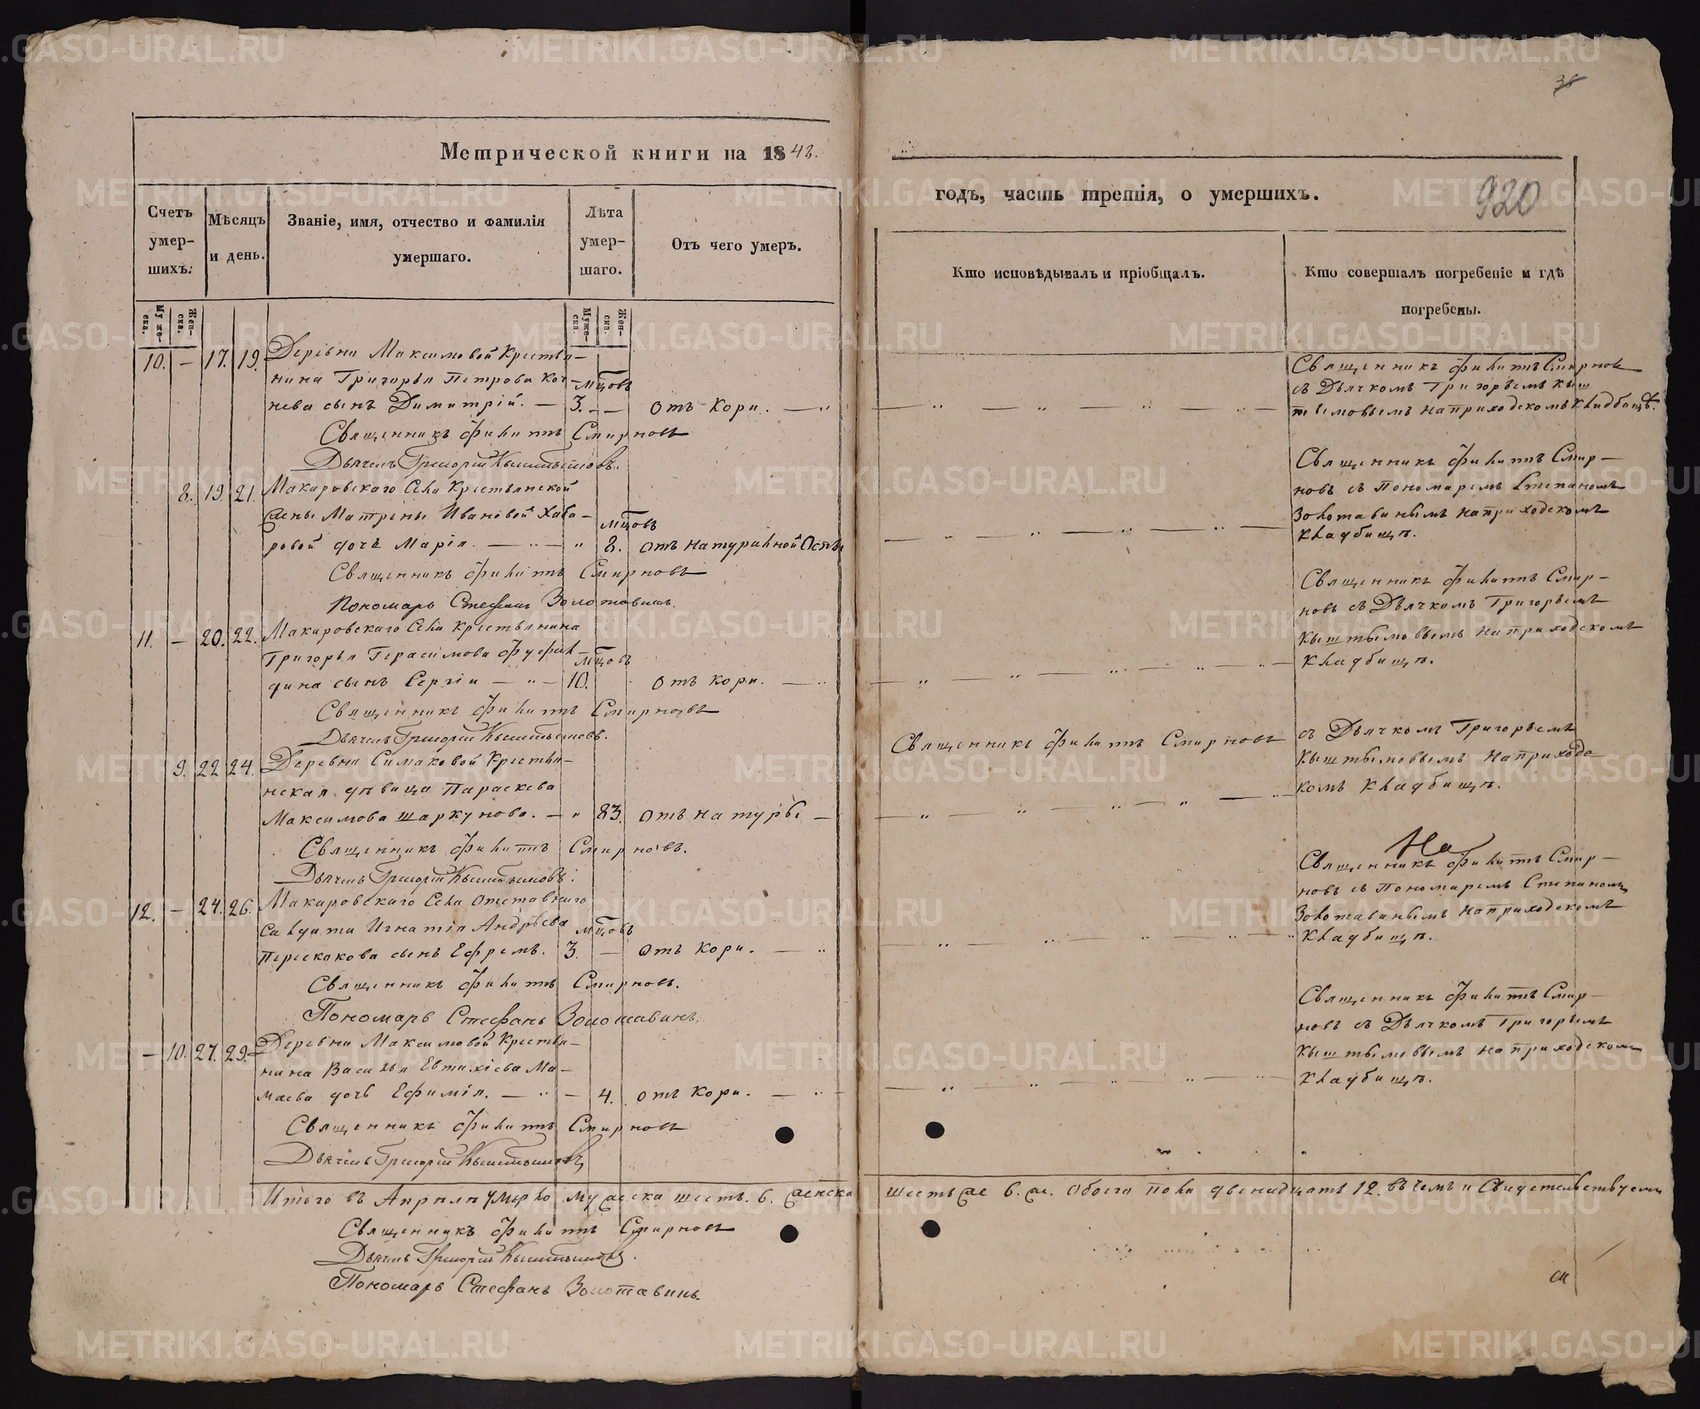 Метрической книги на 1842.
Счетъ умершихъ.
Мѣсяцъ и день.
Званіе, имя, отчество и фамилія умершаго.
Лѣта умершаго.
Отъ чего умеръ.
Мужеска. Женска.
Мужеска. Женска.
10. — 17. 19. Деревни Максимовой Крестья-
нина Григорья Петрова
сынъ Димитрій. — 3. мцовъ — отъ кори.
Священникъ Филиппъ Смирновъ
Дьячекъ Григорій Кыштымовъ.
8. 19 21. Макаровскаго Села Крестьянской
жены Матрены Ивановой Хаба-
ровой дочь Марія. — " 8. мцовъ отъ натуральной Оспы
Священникъ Филиппъ Смирновъ
Пономарь Стефанъ Золотавинъ.
11. — 20. 22. Макаровскаго Села крестьянина
Григорья Герасимова
сынъ Сергій — " — 10. мцовъ отъ кори.
Священникъ Филиппъ Смирновъ
Дьячекъ Григорій Кыштымовъ.
9. 22 24. Деревни Симаковой Крестьян-
ская дѣвица Параскева
Максимова Шаркунова. — " 83. отъ натуры —
Священникъ Филиппъ Смирновъ.
Дьячекъ Григорій Кыштымовъ.
12. — 24. 26. Макаровскаго Села отставнаго
Салдата Игнатія Андрѣева
Перескокова сынъ Ефремъ. 3. мцовъ — отъ кори.
Священникъ Филиппъ Смирновъ.
Пономарь Стефанъ Золотавинъ.
— 10. 27. 29. Деревни Максимовой Крестья-
нина Василья Евтихіева Ма-
маева дочь Ефимія. — " — 4. отъ кори.
Священникъ Филиппъ Смирновъ
Дьячекъ Григорій Кыштымовъ
Итого въ Апрѣлѣ умерло мужеска шесть. 6. женска
Священникъ Филиппъ Смирновъ
Дьячекъ Григорій Кыштымовъ.
Пономарь Стефанъ Золотавинъ.
38
920
годъ, часть третія, о умершихъ.
Кто исповѣдывалъ и пріобщалъ.
Кто совершалъ погребеніе и гдѣ
погребены.
Священникъ Филиппъ Смирновъ
съ Дьячкомъ Григорьемъ Кыш
тымовымъ на приходскомъ кладбищѣ.
Священникъ Филиппъ Смир-
новъ съ Пономаремъ Степаномъ
Золотавинымъ на приходскомъ
кладбищѣ.
Священникъ Филиппъ Смир-
новъ съ Дьячкомъ Григорьемъ
Кыштымовымъ на приходскомъ
кладбищѣ.
Священникъ Филиппъ Смирновъ
съ Дьячкомъ Григорьемъ
Кыштымовымъ на приходс
комъ кладбищѣ.
На
Священникъ Филиппъ Смир-
новъ съ Пономаремъ Степаномъ
Золотавинымъ на приходскомъ
кладбищѣ.
Священникъ Филиппъ Смир-
новъ съ Дьячкомъ Григорьемъ
Кыштымовымъ на приходскомъ
кладбищѣ.
шесть же 6. же. обоего пола двенадцать 12. въ чемъ и Свидетельствуемъ
METRIKI.GASO-URAL.RU